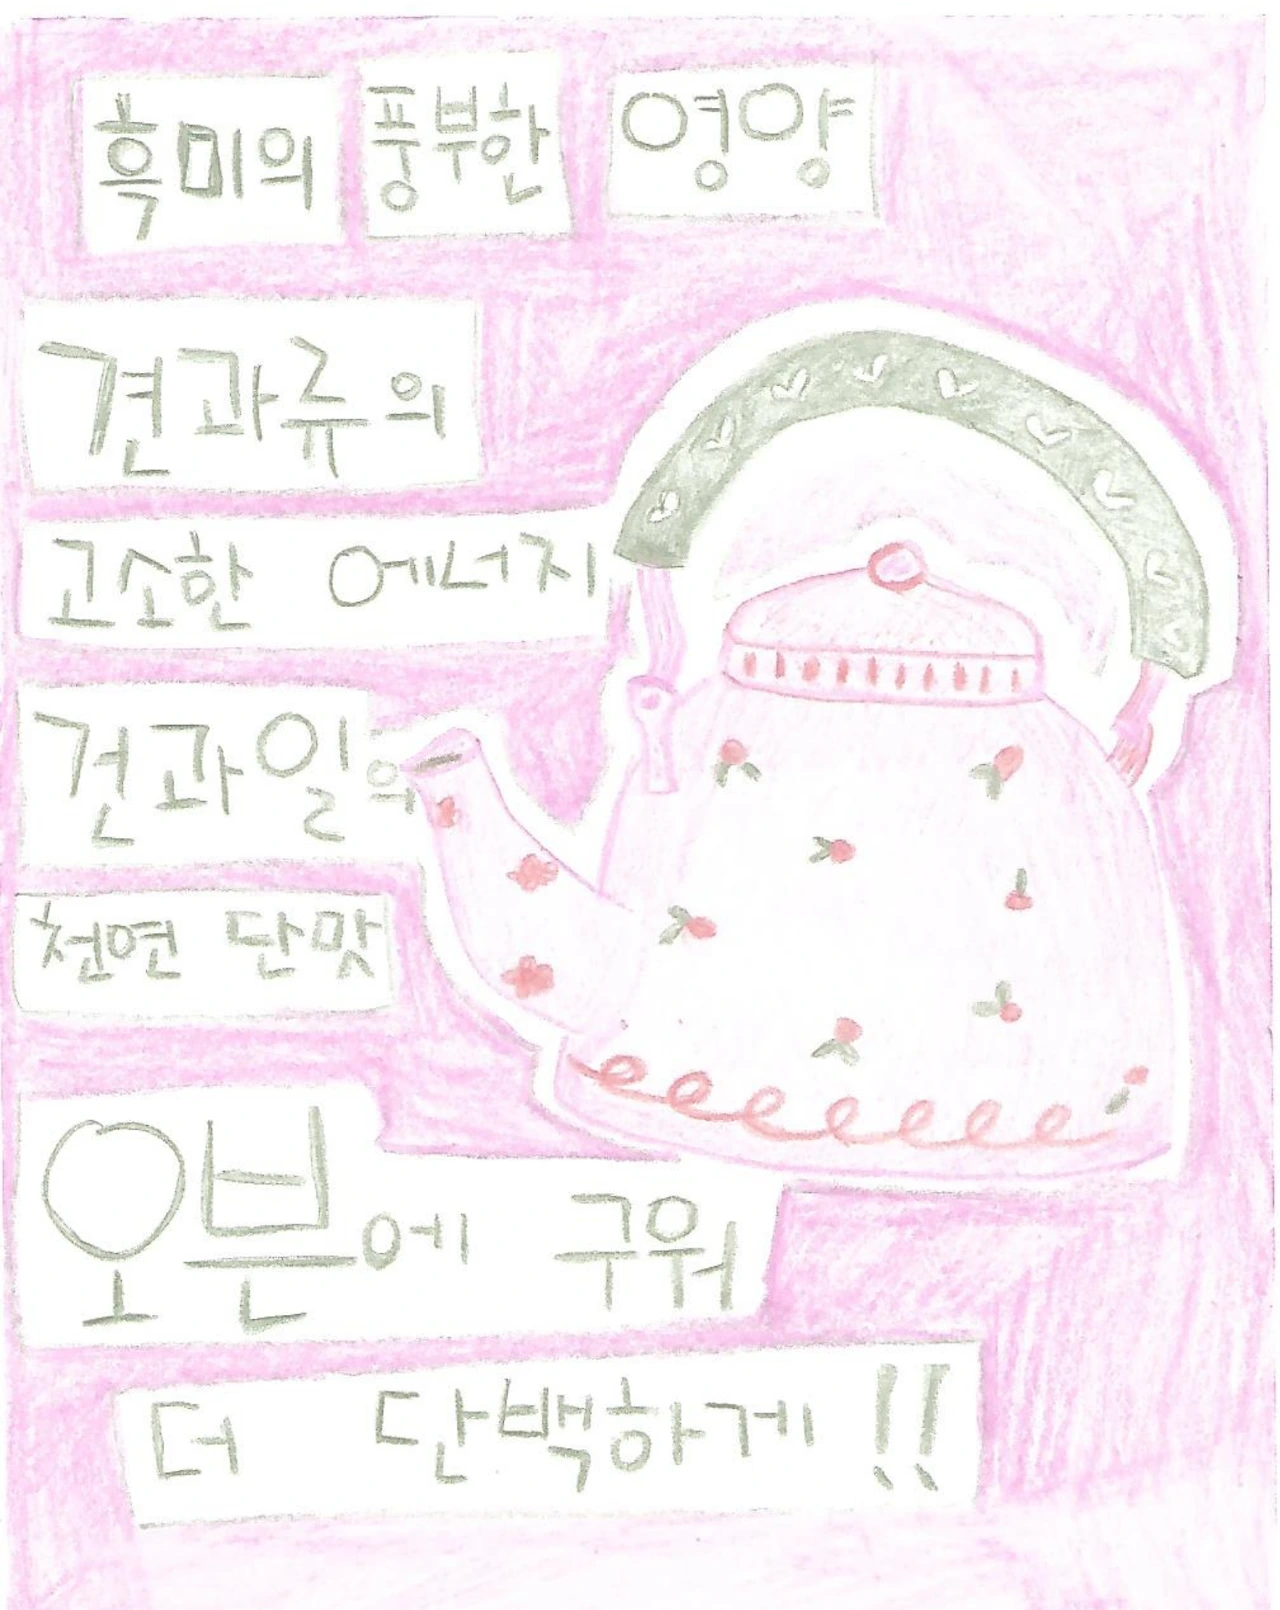 흑미의 풍부한 영양
견과류의
고소한 에너지
건과일의
천연 단맛
오븐에 구워
더 단백하게!!